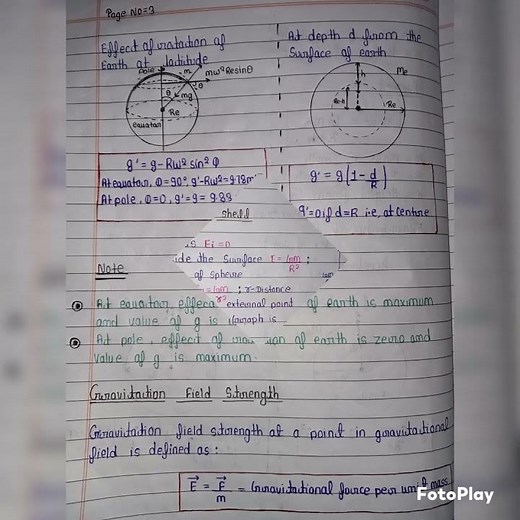 Page No=3
Effect of rotation of
Earth at latitude
Pole
m
mω²Resinθ
θ
θ
mg
Re
equator
g' = g-Rω² sin² Φ
At equator, Φ=90°, g'-Rω²=9.78m
At pole, Φ=0, g'=g= 9.83
At depth d from the
Surface of earth
h
Me
Re-h
Re
g' = g(1-d/R)
g'=0 if d=R i.e, at centre
Shell
is Ei=0
ide the Surface I = GM/R² ;
of Sphere
= GM/r² ; r-Distance
external point
Graph is
Note
At equator, effec
of earth is maximum
and value of g is
At pole, effect of
ion of earth is zero and
value of g is maximum.
Gravitation Field Strength
Gravitation field strength at a point in gravitational
field is defined as:
E = F/m = Gravitational force per unit mass
FotoPlay